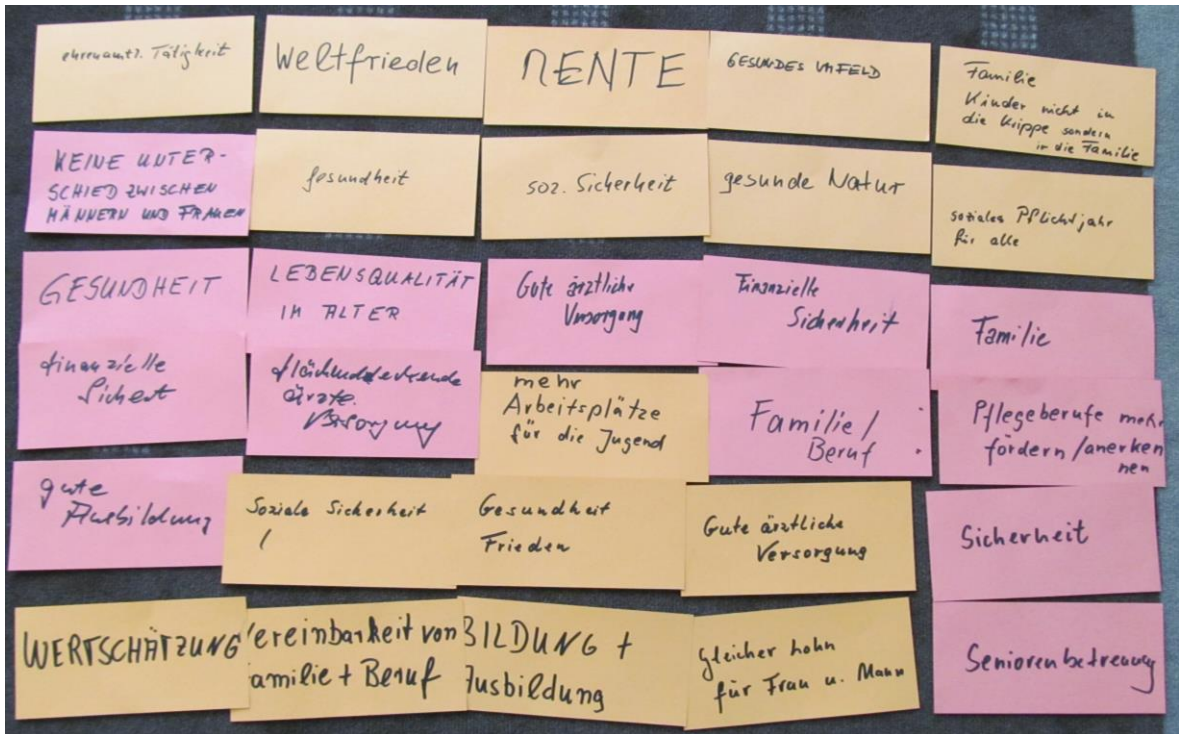 ehrenamtl. Tätigkeit
Weltfrieden
RENTE
GESUNDES UMFELD
Familie
Kinder nicht in
die Krippe sondern
in die Familie
KEINE UNTER-
SCHIED ZWISCHEN
MÄNNERN UND FRAUEN
Gesundheit
soz. Sicherheit
gesunde Natur
soziales Pflichtjahr
für alle
GESUNDHEIT
LEBENSQUALITÄT
IM ALTER
Gute ärztliche
Versorgung
Finanzielle
Sicherheit
Familie
finanzielle
Sichert
flächendeckende
ärzte.
Versorgung
mehr
Arbeitsplätze
für die Jugend
Familie/
Beruf
Pflegeberufe mehr
fördern/anerken
nen
gute
Ausbildung
Soziale Sicherheit
/
Gesundheit
Frieden
Gute ärztliche
Versorgung
Sicherheit
WERTSCHÄTZUNG
Vereinbarkeit von
Familie + Beruf
BILDUNG +
Ausbildung
gleicher Lohn
für Frau u. Mann
Seniorenbetreuung